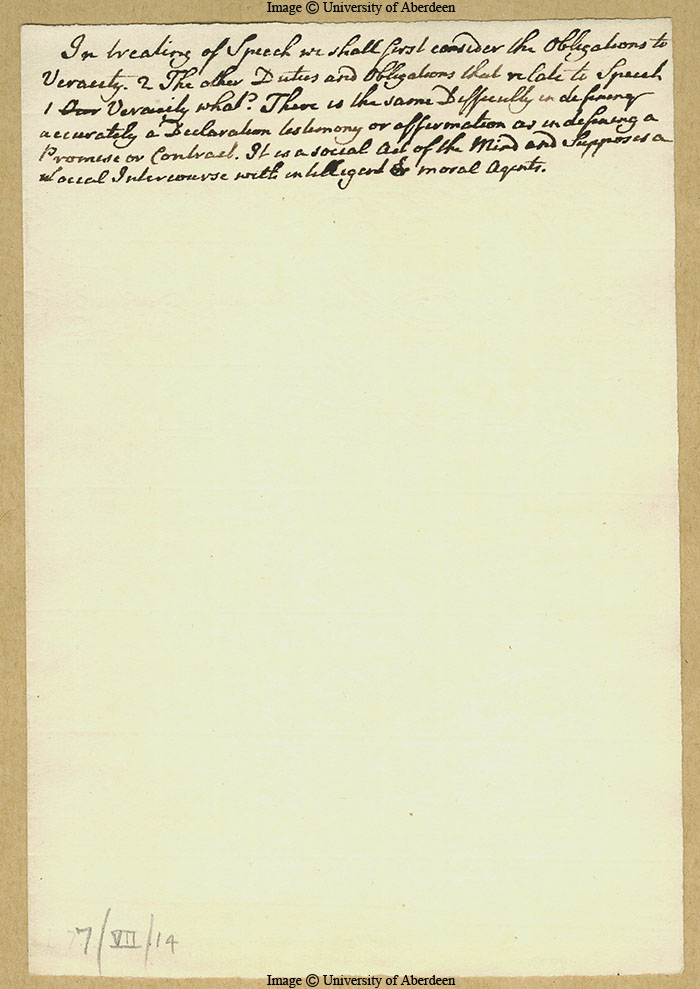 Image © University of Aberdeen
In treating of Speech we shall first consider the Obligations to
Veracity. 2 The other Duties and Obligations that relate to Speech
1 Our Veracity what? There is the same Difficulty in defining
accurately a Declaration testimony or affirmation as in defining a
Promise or Contract. It is a social Act of the Mind and Supposes a
social Intercourse with intelligent & moral Agents.
7/VII/14
Image © University of Aberdeen